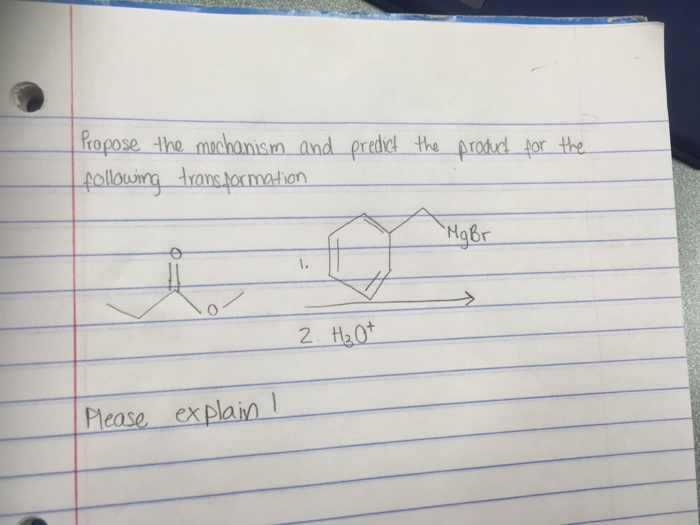 Propose the mechanism and predict the product for the
following transformation
O
O
1.
MgBr
2. H₃O⁺
Please explain!